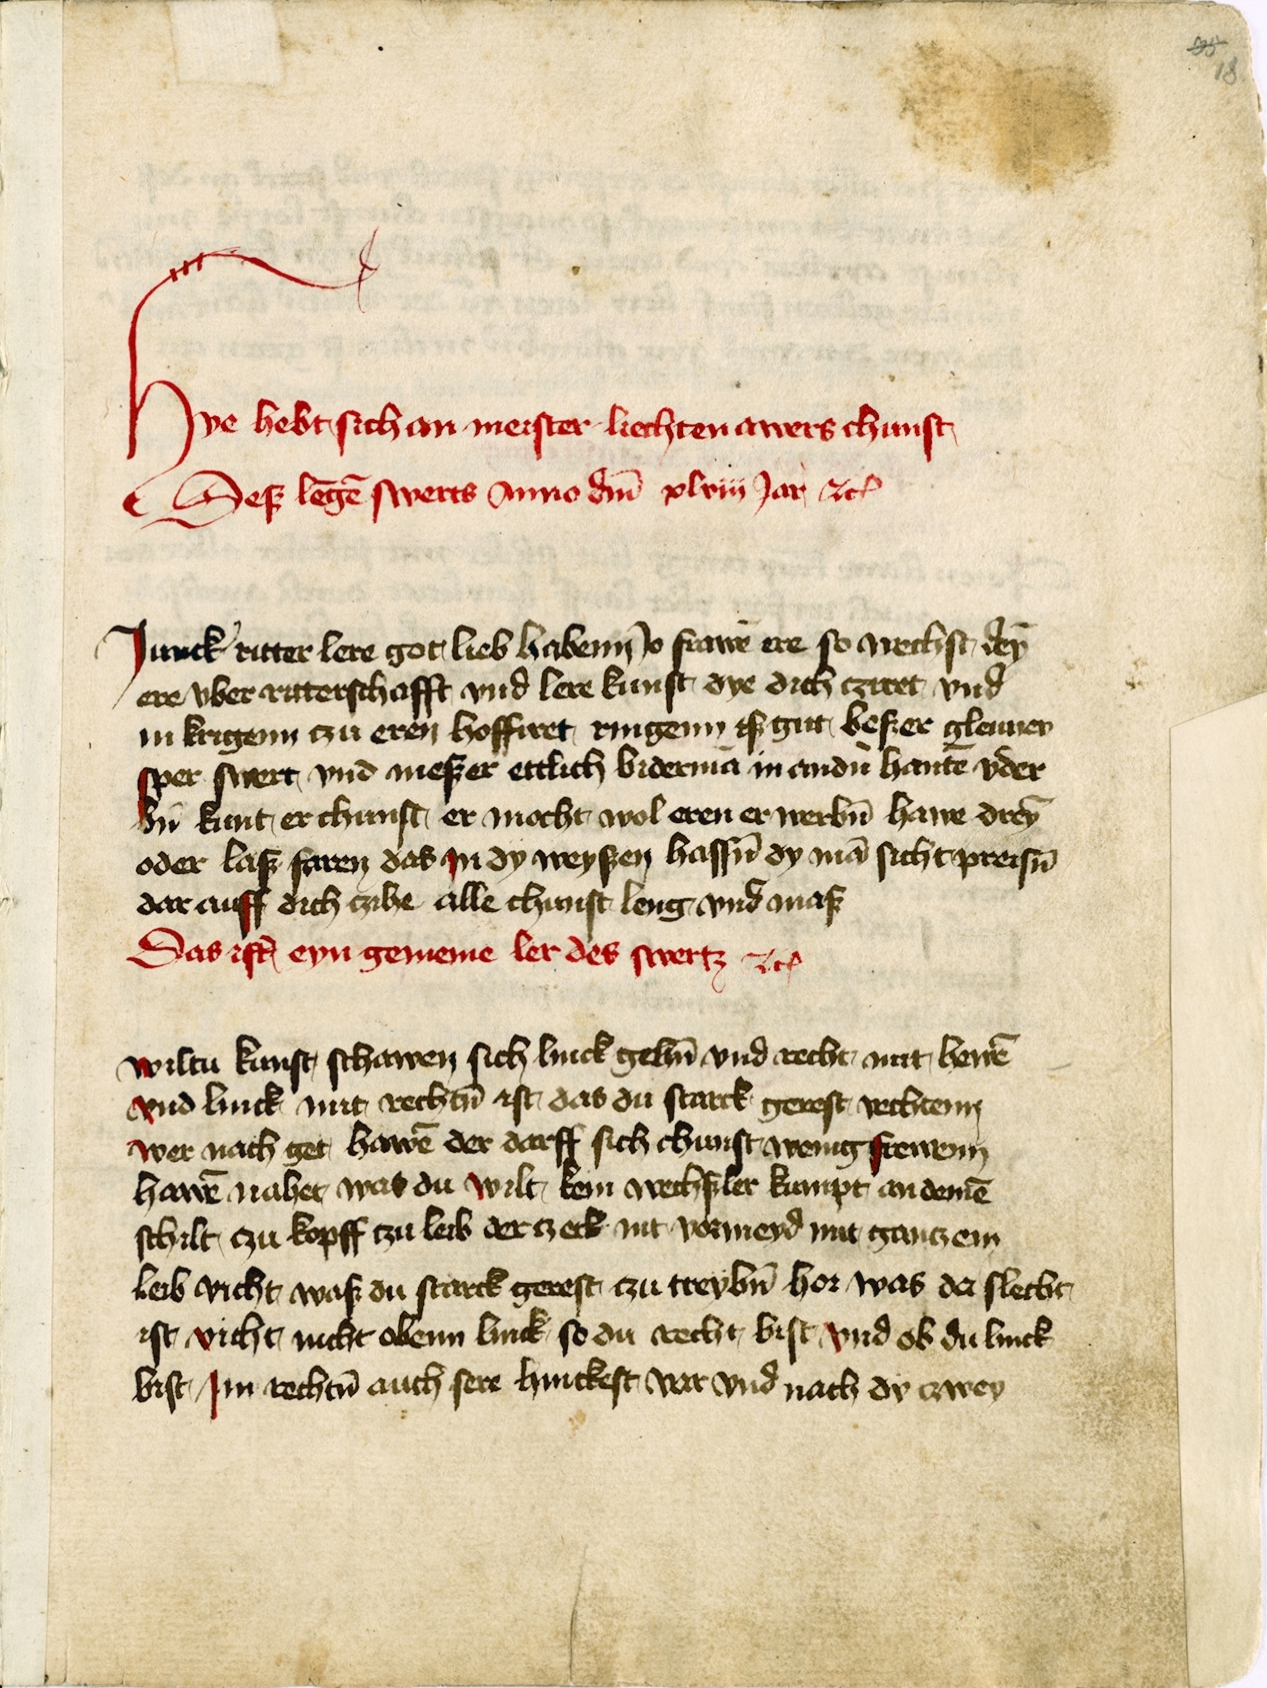 18
Hye hebt sich an meister liechtenawers chunst
Deß lēgē swerts Anno dm̄ xlviij Jar ⁊c̄
Junck ritter lere got lieb habenn Jo frawē ere so wechst deȳ
ere vber ritterschafft vnd lere kunst dye dich cziret vnd
in krigenn czu eren hoffiret ringenn iſz gut beſzer glenney
sper swert vnd meſzer ettlich bidermā in andn̄ hantē vder
bn̄ kunt er chunst er mocht wol eren er werbn̄ hawe dreȳ
oder laſz faren das in dy weyſzen hassn̄ dy mā sicht preisn̄
dar auff dich czihe alle chunst leng vnd maſz
Das ist eyn gemeine ler des swertz ⁊c̄
wiltu kunst schawen sich linck gehn̄ vnd recht mit hewē
vnd linck mit rechtn̄ ist das du starck gerest vechtenn
wer nach get hawē der darff sich chunst wenig frewenn
hawē nahet was du wilt kein wechſzler kumpt an deinē
schilt czu kopff czu leib der czeck nit vormeyd mit ganczem
leib vicht waſz du starck gerest czu treybn̄ hor was da slecht
ist vicht nicht obenn linck so du recht bist vnd ob du linck
bist Im rechtn̄ auch sere hinckest vor vnd nach dy czwey